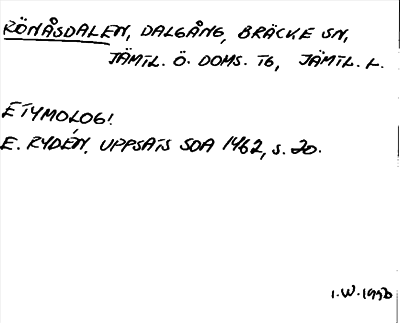 RÖNÅSDALEN, DALGÅNG, BRÄCKE SN,
JÄMTL. Ö. DOMS. TG, JÄMTL. L.
ETYMOLOGI
E. RYDÉN, UPPSATS SOA 1462, s. 20.
I.W. 1990